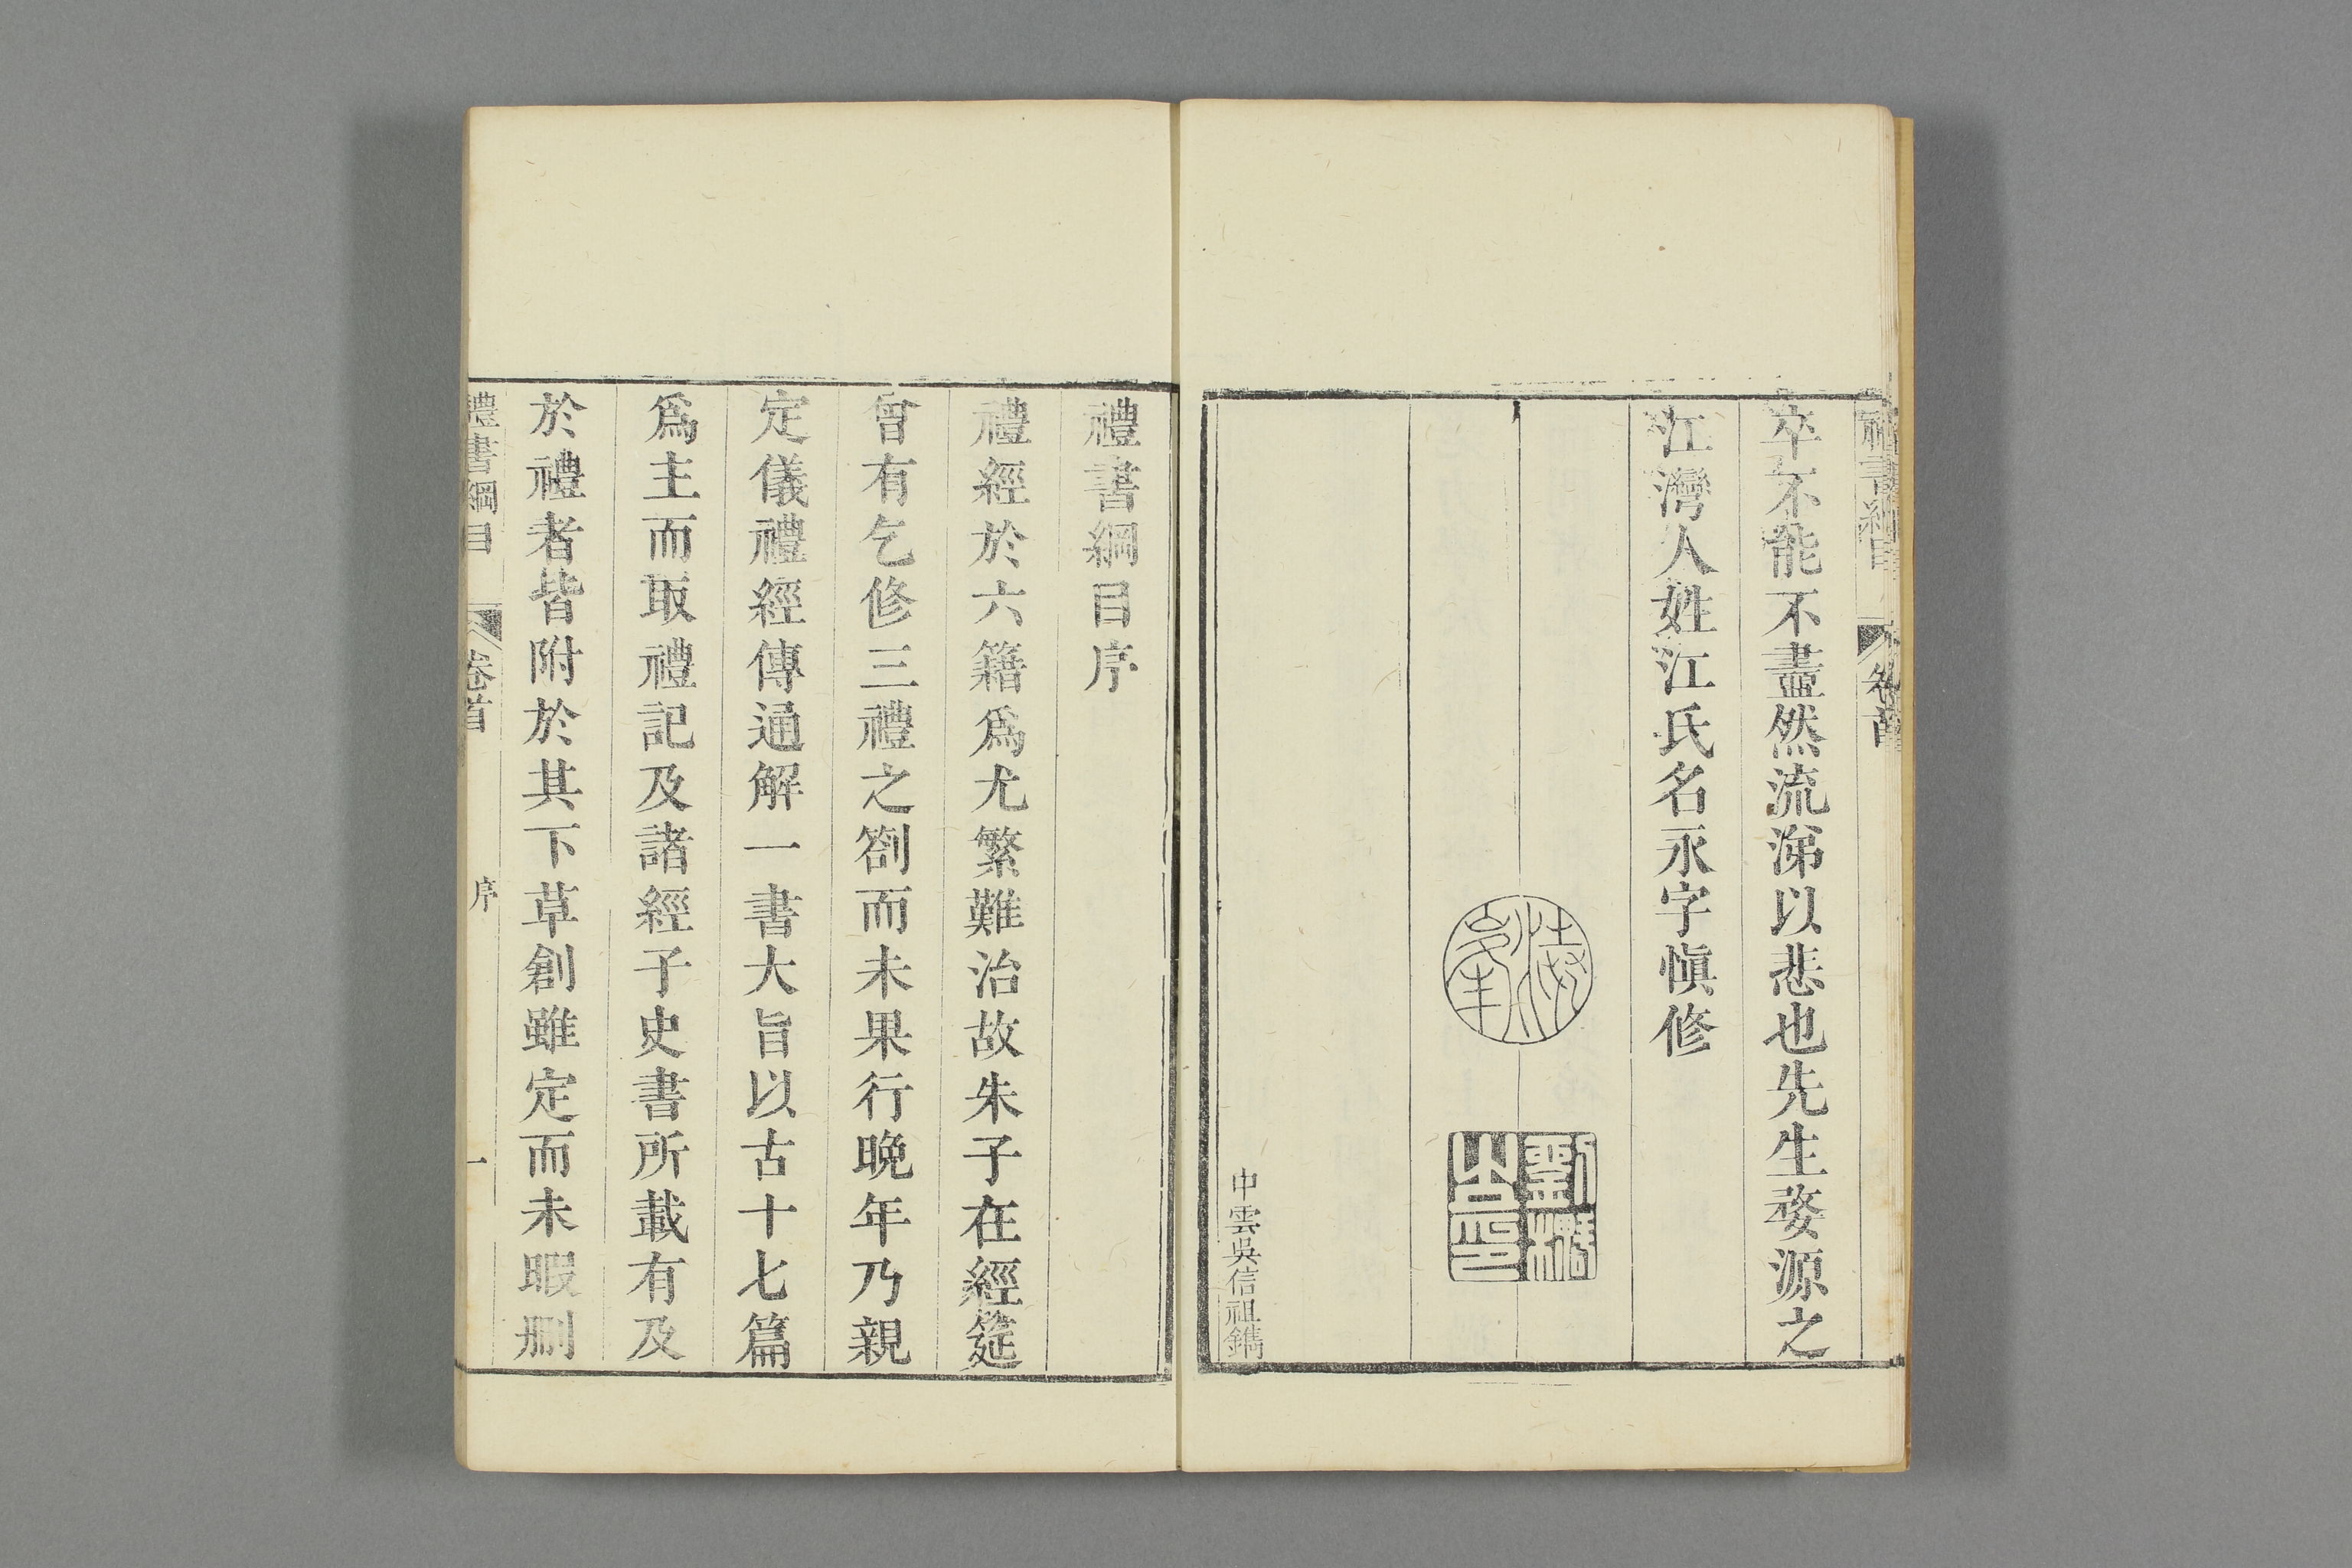 禮書綱目
卷首
卒不能不盡然流涕以悲也先生婺源之
江灣人姓江氏名永字愼修
劉𤫊樞之印
中雲吳信祖鐫
禮書綱目序
禮經於六籍爲尤繁難治故朱子在經筵
曾有乞修三禮之劄而未果行晩年乃親
定儀禮經傳通解一書大旨以古十七篇
爲主而取禮記及諸經子史書所載有及
於禮者皆附於其下草創雖定而未暇刪
禮書綱目
卷首
序
一